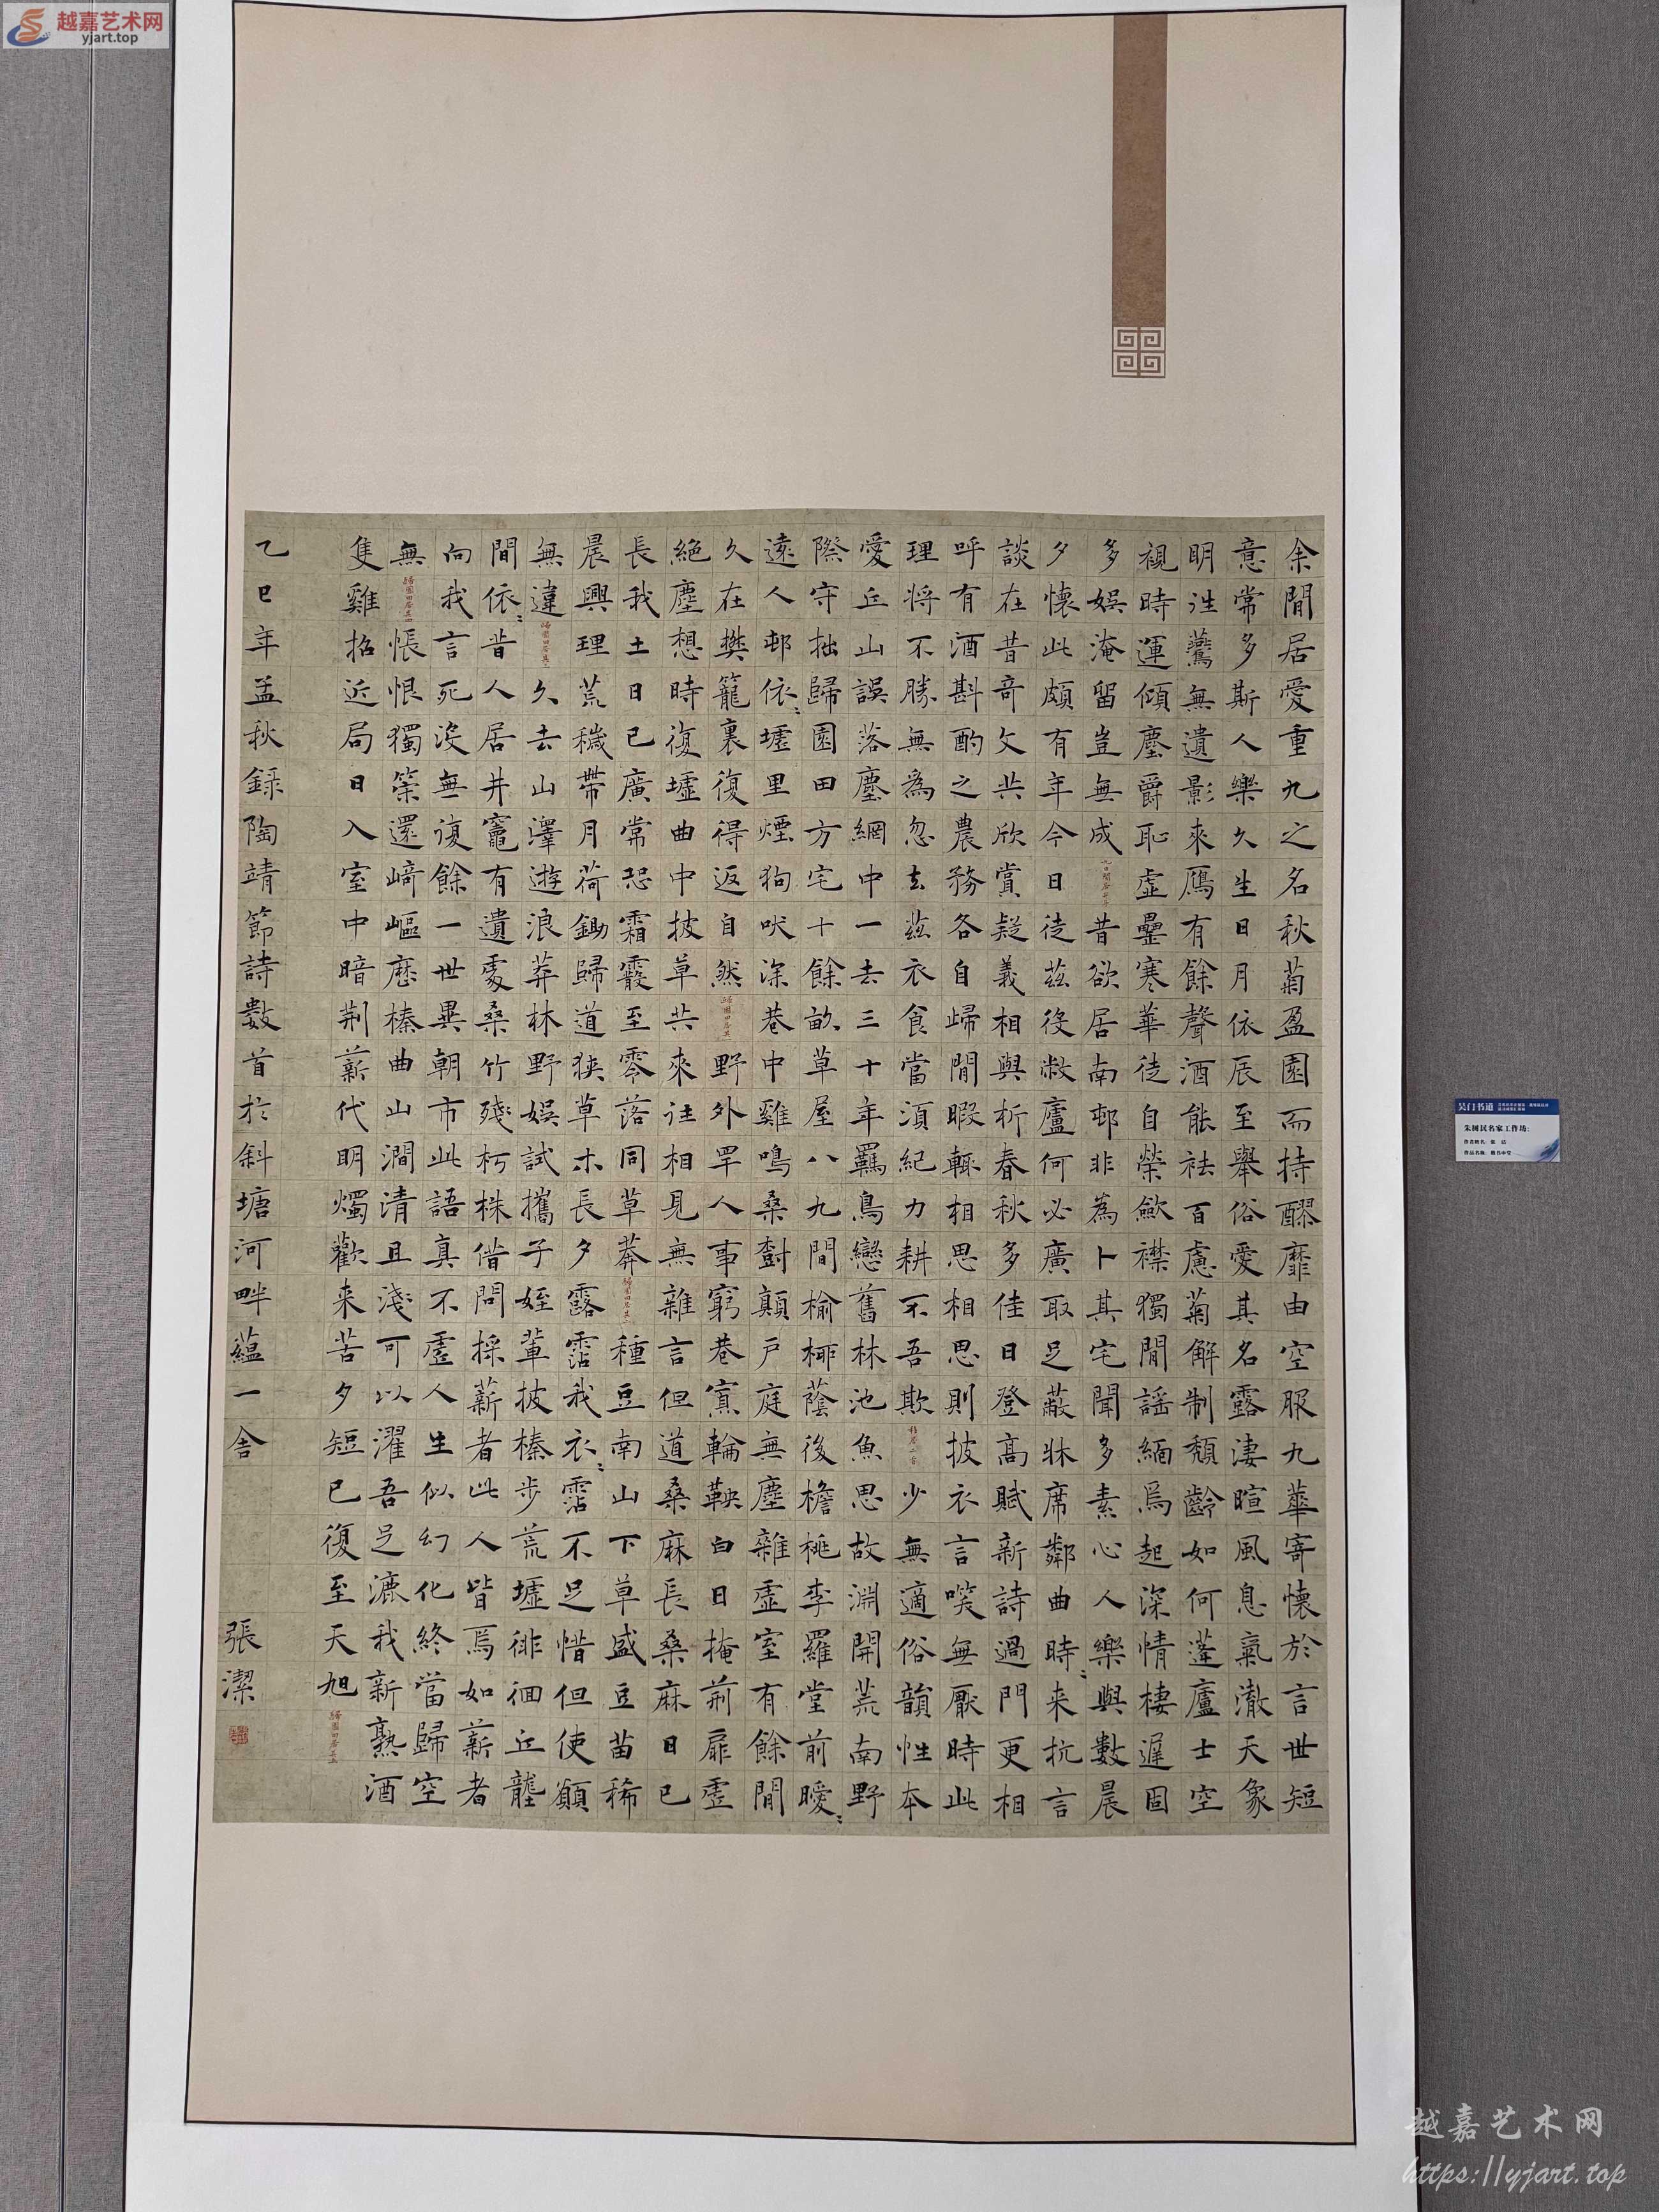 越嘉艺术网
yjart.top
余閒居愛重九之名秋菊盈園而持醪靡由空服九華寄懷於言世短
意常多斯人樂久生日月依辰至舉俗愛其名露淒暄風息氣澈天象
明往鷰無遺影來鴈有餘聲酒能祛百慮菊解制頹齡如何蓬廬士空
視時運傾塵爵恥虛罍寒華徒自榮斂襟獨閒謠緬焉起深情棲遲固
多娛淹留豈無成九日閒居并序昔欲居南邨非為卜其宅聞多素心人樂與數晨
夕懷此頗有年今日從茲役敝廬何必廣取足蔽牀席鄰曲時〻来抗言
談在昔奇文共欣賞疑義相與析春秋多佳日登高賦新詩過門更相
呼有酒斟酌之農務各自歸閒暇輒相思相思則披衣言笑無厭時此
理將不勝無為忽去茲衣食當須紀力耕不吾欺移居二首少無適俗韻性本
愛丘山誤落塵網中一去三十年羈鳥戀舊林池魚思故淵開荒南野
際守拙歸園田方宅十餘畝草屋八九間榆柳蔭後檐桃李羅堂前曖〻
遠人邨依〻墟里煙狗吠深巷中雞鳴桑樹顛戶庭無塵雜虛室有餘閒
久在樊籠裏復得返自然歸園田居其一野外罕人事窮巷寡輪鞅白日掩荊扉虛
絕塵想時復墟曲中披草共來往相見無雜言但道桑麻長桑麻日已
長我土日已廣常恐霜霰至零落同草莽歸園田居其二種豆南山下草盛豆苗稀
晨興理荒穢帶月荷鋤歸道狹草木長夕露霑我衣〻霑不足惜但使願
無違歸園田居其三久去山澤遊浪莽林野娛試攜子姪輩披榛步荒墟徘徊丘壟
間依〻昔人居井竈有遺處桑竹殘朽株借問採薪者此人皆焉如薪者
向我言死沒無復餘一世異朝市此語真不虛人生似幻化終當歸空
無歸園田居其四悵恨獨策還崎嶇歷榛曲山澗清且淺可以濯吾足漉我新熟酒
隻雞招近局日入室中暗荊薪代明燭歡来苦夕短已復至天旭歸園田居其五
乙巳年孟秋録陶靖節詩數首於斜塘河畔蘊一舍 張潔
吴门书道
朱树民名家工作坊:
作者姓名：张 洁
作品名称：楷书中堂
越嘉艺术网
https://yjart.top